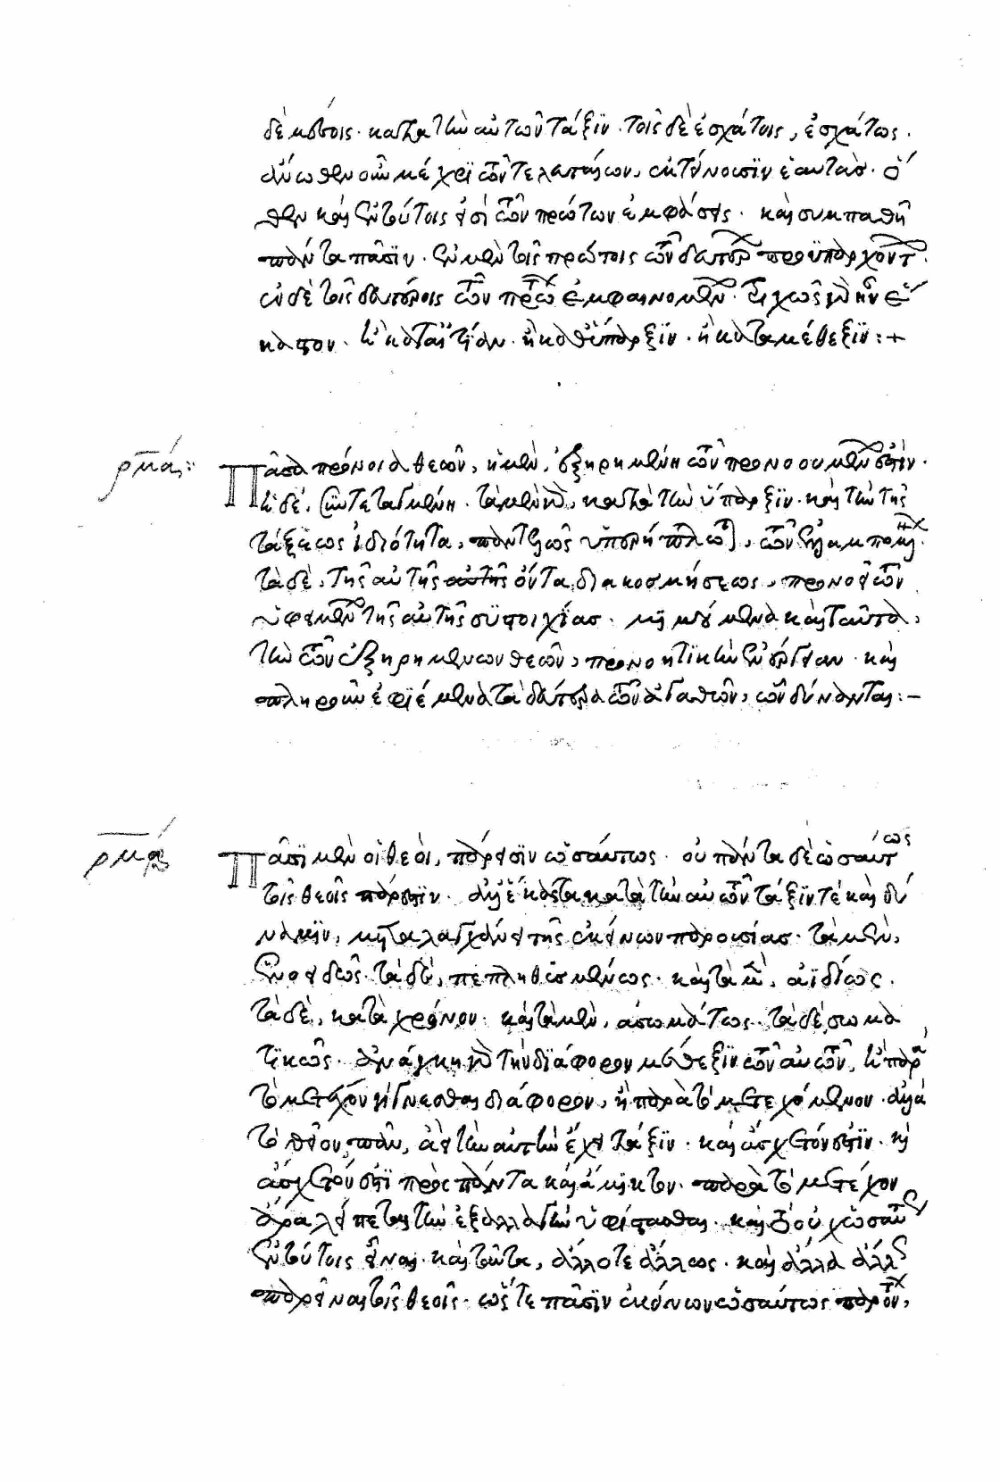 δὲ μέσοις· κατὰ τὴν αὐτῶν τάξιν· τοῖς δὲ ἐσχάτοις, ἐσχάτως.
ἄνωθεν οὖν μέχρι τῶν τελευταίων, ἐκτείνουσιν ἑαυτάς· ὅ
θεν καὶ ἐν τούτοις εἰσὶ τῶν πρώτων ἐμφάσεις· καὶ συμπαθῆ
πάντα πᾶσιν· ἐν μὲν τοῖς πρώτοις τῶν δευτέρων προϋπαρχόντων·
ἐν δὲ τοῖς δευτέροις τῶν πρώτων ἐμφαινομένων· τριχῶς γὰρ ἦν ἕ
καστον· ἢ κατ' αἰτίαν· ἢ καθ' ὕπαρξιν· ἢ κατὰ μέθεξιν:+
ρμα: Πᾶσα πρόνοια θεῶν, ἡ μὲν, ἐξηρημένη τῶν προνοουμένων ἐστίν·
ἡ δέ, συντεταγμένη· τὰ μὲν γὰρ, κατὰ τὴν ὕπαρξιν· καὶ τὴν τῆς
τάξεως ἰδιότητα, παντελῶς ὑπερήπλωται, τῶν ἐλλαμπομένων·
τὰ δὲ, τῆς αὐτῆς ὄντα διακοσμήσεως, προνοεῖ τῶν
ὑφειμένων τῆς αὐτῆς συστοιχίας· μιμούμενα καὶ ταῦτα,
τὴν τῶν ἐξηρημένων θεῶν, προνοητικὴν ἐνέργειαν· καὶ
πληροῦν ἐφιέμενα τὰ δεύτερα τῶν ἀγαθῶν, ὧν δύνανται:–
ρμβ Πᾶσι μὲν οἱ θεοὶ, πάρεισιν ὡσαύτως· οὐ πάντα δὲ ὡσαύτως
τοῖς θεοῖς πάρεστιν· ἀλλ' ἕκαστα κατὰ τὴν αὐτῶν τάξιν τὲ καὶ δύ
ναμιν, μεταλαγχάνει τῆς ἐκείνων παρουσίας· τὰ μὲν,
ἑνοειδῶς· τὰ δὲ, πεπληθυσμένως· καὶ τὰ μὲν, ἀϊδίως·
τὰ δὲ, κατὰ χρόνον· καὶ τὰ μὲν, ἀσωμάτως· τὰ δὲ, σωμα
τικῶς· ἀνάγκη γὰρ τὴν διάφορον μέθεξιν τῶν αὐτῶν, ἢ παρὰ
τὸ μετέχον γίγνεσθαι διάφορον, ἢ παρὰ τὸ μετεχόμενον· ἀλλὰ
τὸ θεῖον πᾶν, ἀεὶ τὴν αὐτὴν ἔχει τάξιν· καὶ ἄσχετόν ἐστιν· καὶ
ἄσχετόν ἐστι πρὸς πάντα καὶ ἄμικτον· παρὰ τὸ μετέχον
ἄρα λείπεται τὴν ἐξαλλαγὴν ὑφίστασθαι· καὶ τὸ οὐχ ὡσαύτως
ἐν τούτοις εἶναι· καὶ ταῦτα, ἄλλοτε ἄλλως· καὶ ἄλλα ἄλλως
παρεῖναι τοῖς θεοῖς· ὥστε πᾶσιν ἐκείνων ὡσαύτως παρόντων,